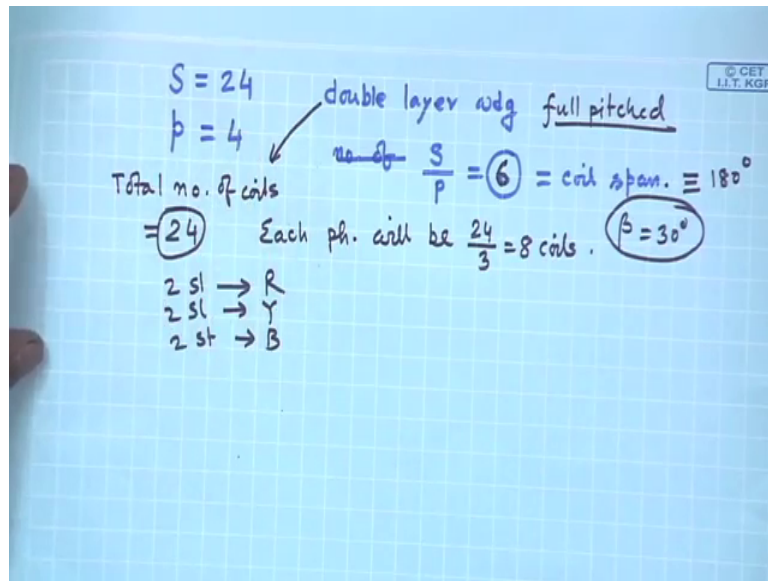 © CET
I.I.T. KGP
S = 24
double layer wdg full pitched
p = 4
no of S/P = 6 = coil span. ≡ 180°
Total no. of coils
= 24 Each ph. will be 24/3 = 8 coils. β = 30°
2 sl → R
2 sl → Y
2 sl → B